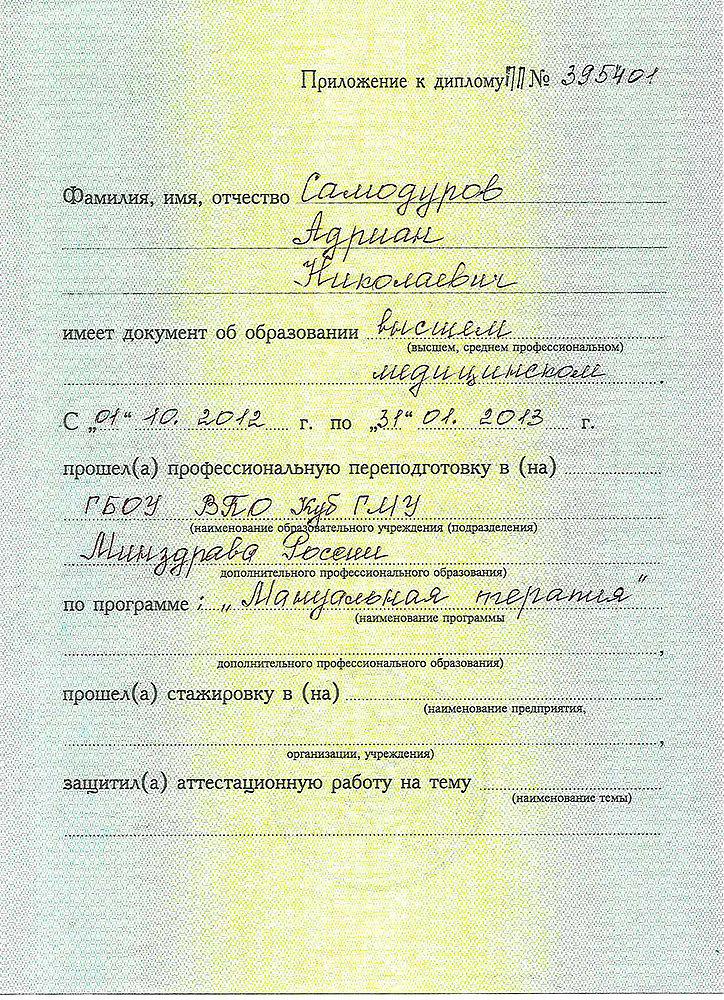 Приложение к диплому ПП № 395401
Фамилия, имя, отчество Самодуров
Адриан
Николаевич
имеет документ об образовании высшем
(высшем, среднем профессиональном)
медицинском.
С „01“ 10. 2012 г. по „31“ 01. 2013 г.
прошел(а) профессиональную переподготовку в (на)
ГБОУ ВПО Куб ГМУ
(наименование образовательного учреждения (подразделения)
Минздрава России
дополнительного профессионального образования)
по программе : „Мануальная терапия”
(наименование программы
,
дополнительного профессионального образования)
прошел(а) стажировку в (на)
(наименование предприятия,
,
организации, учреждения)
защитил(а) аттестационную работу на тему
(наименование темы)